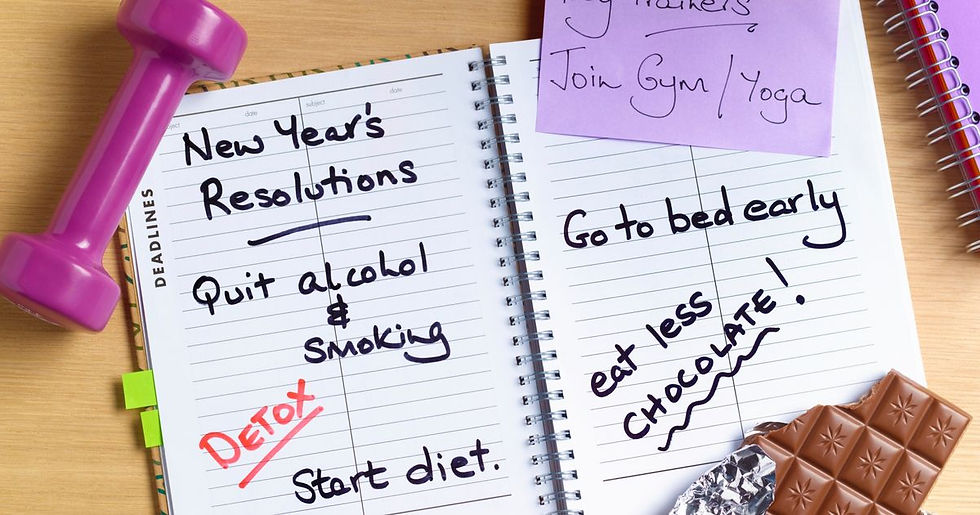 subject date subject date
DEADLINES
New Year's
Resolutions
Quit alcohol
&
smoking
DETOX
Start diet.
Trainers
Join Gym / Yoga
Go to bed early
eat less
CHOCOLATE!